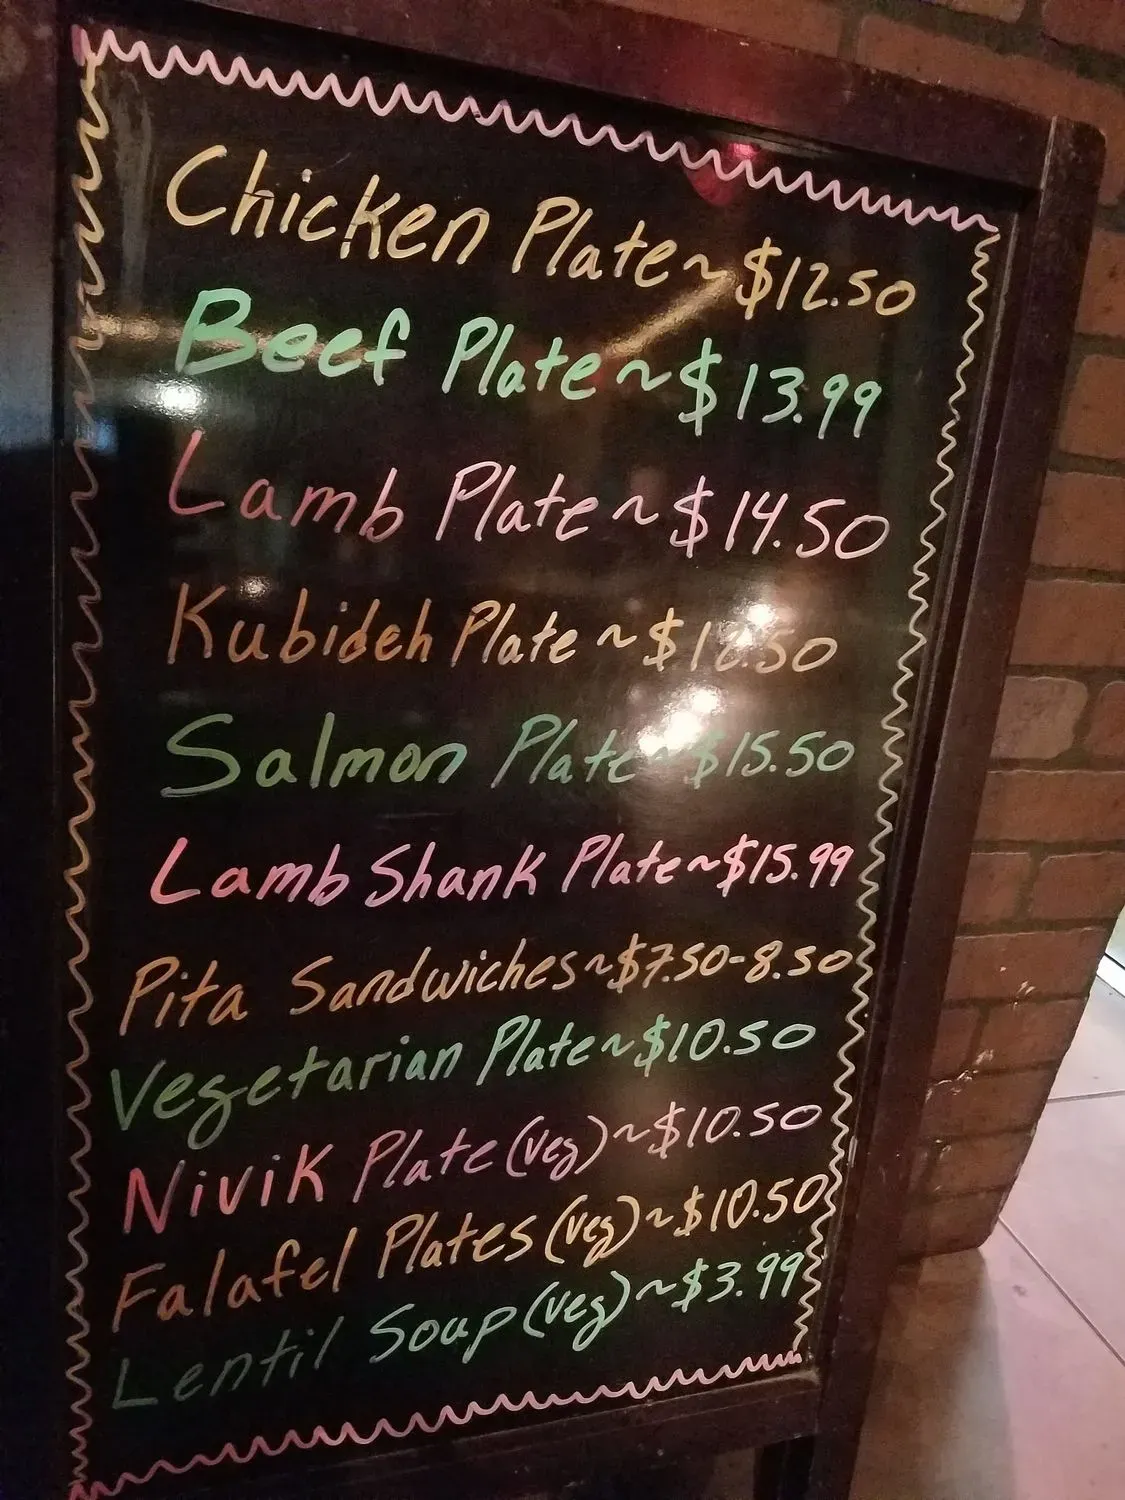 Chicken Plate ~ $12.50
Beef Plate ~ $13.99
Lamb Plate ~ $14.50
Kubideh Plate ~
Salmon Plate ~ $15.50
Lamb Shank Plate ~ $15.99
Pita Sandwiches ~ $7.50-8.50
Vegetarian Plate ~ $10.50
Nivik Plate (veg) ~ $10.50
Falafel Plates (veg) ~ $10.50
Lentil Soup (veg) ~ $3.99